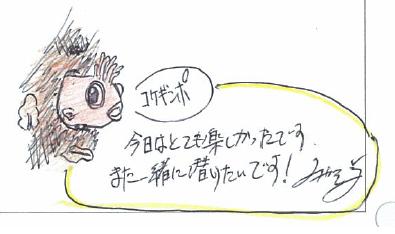 コケギンポ
今日はとても楽しかったです.
また一緒に潜りたいです!